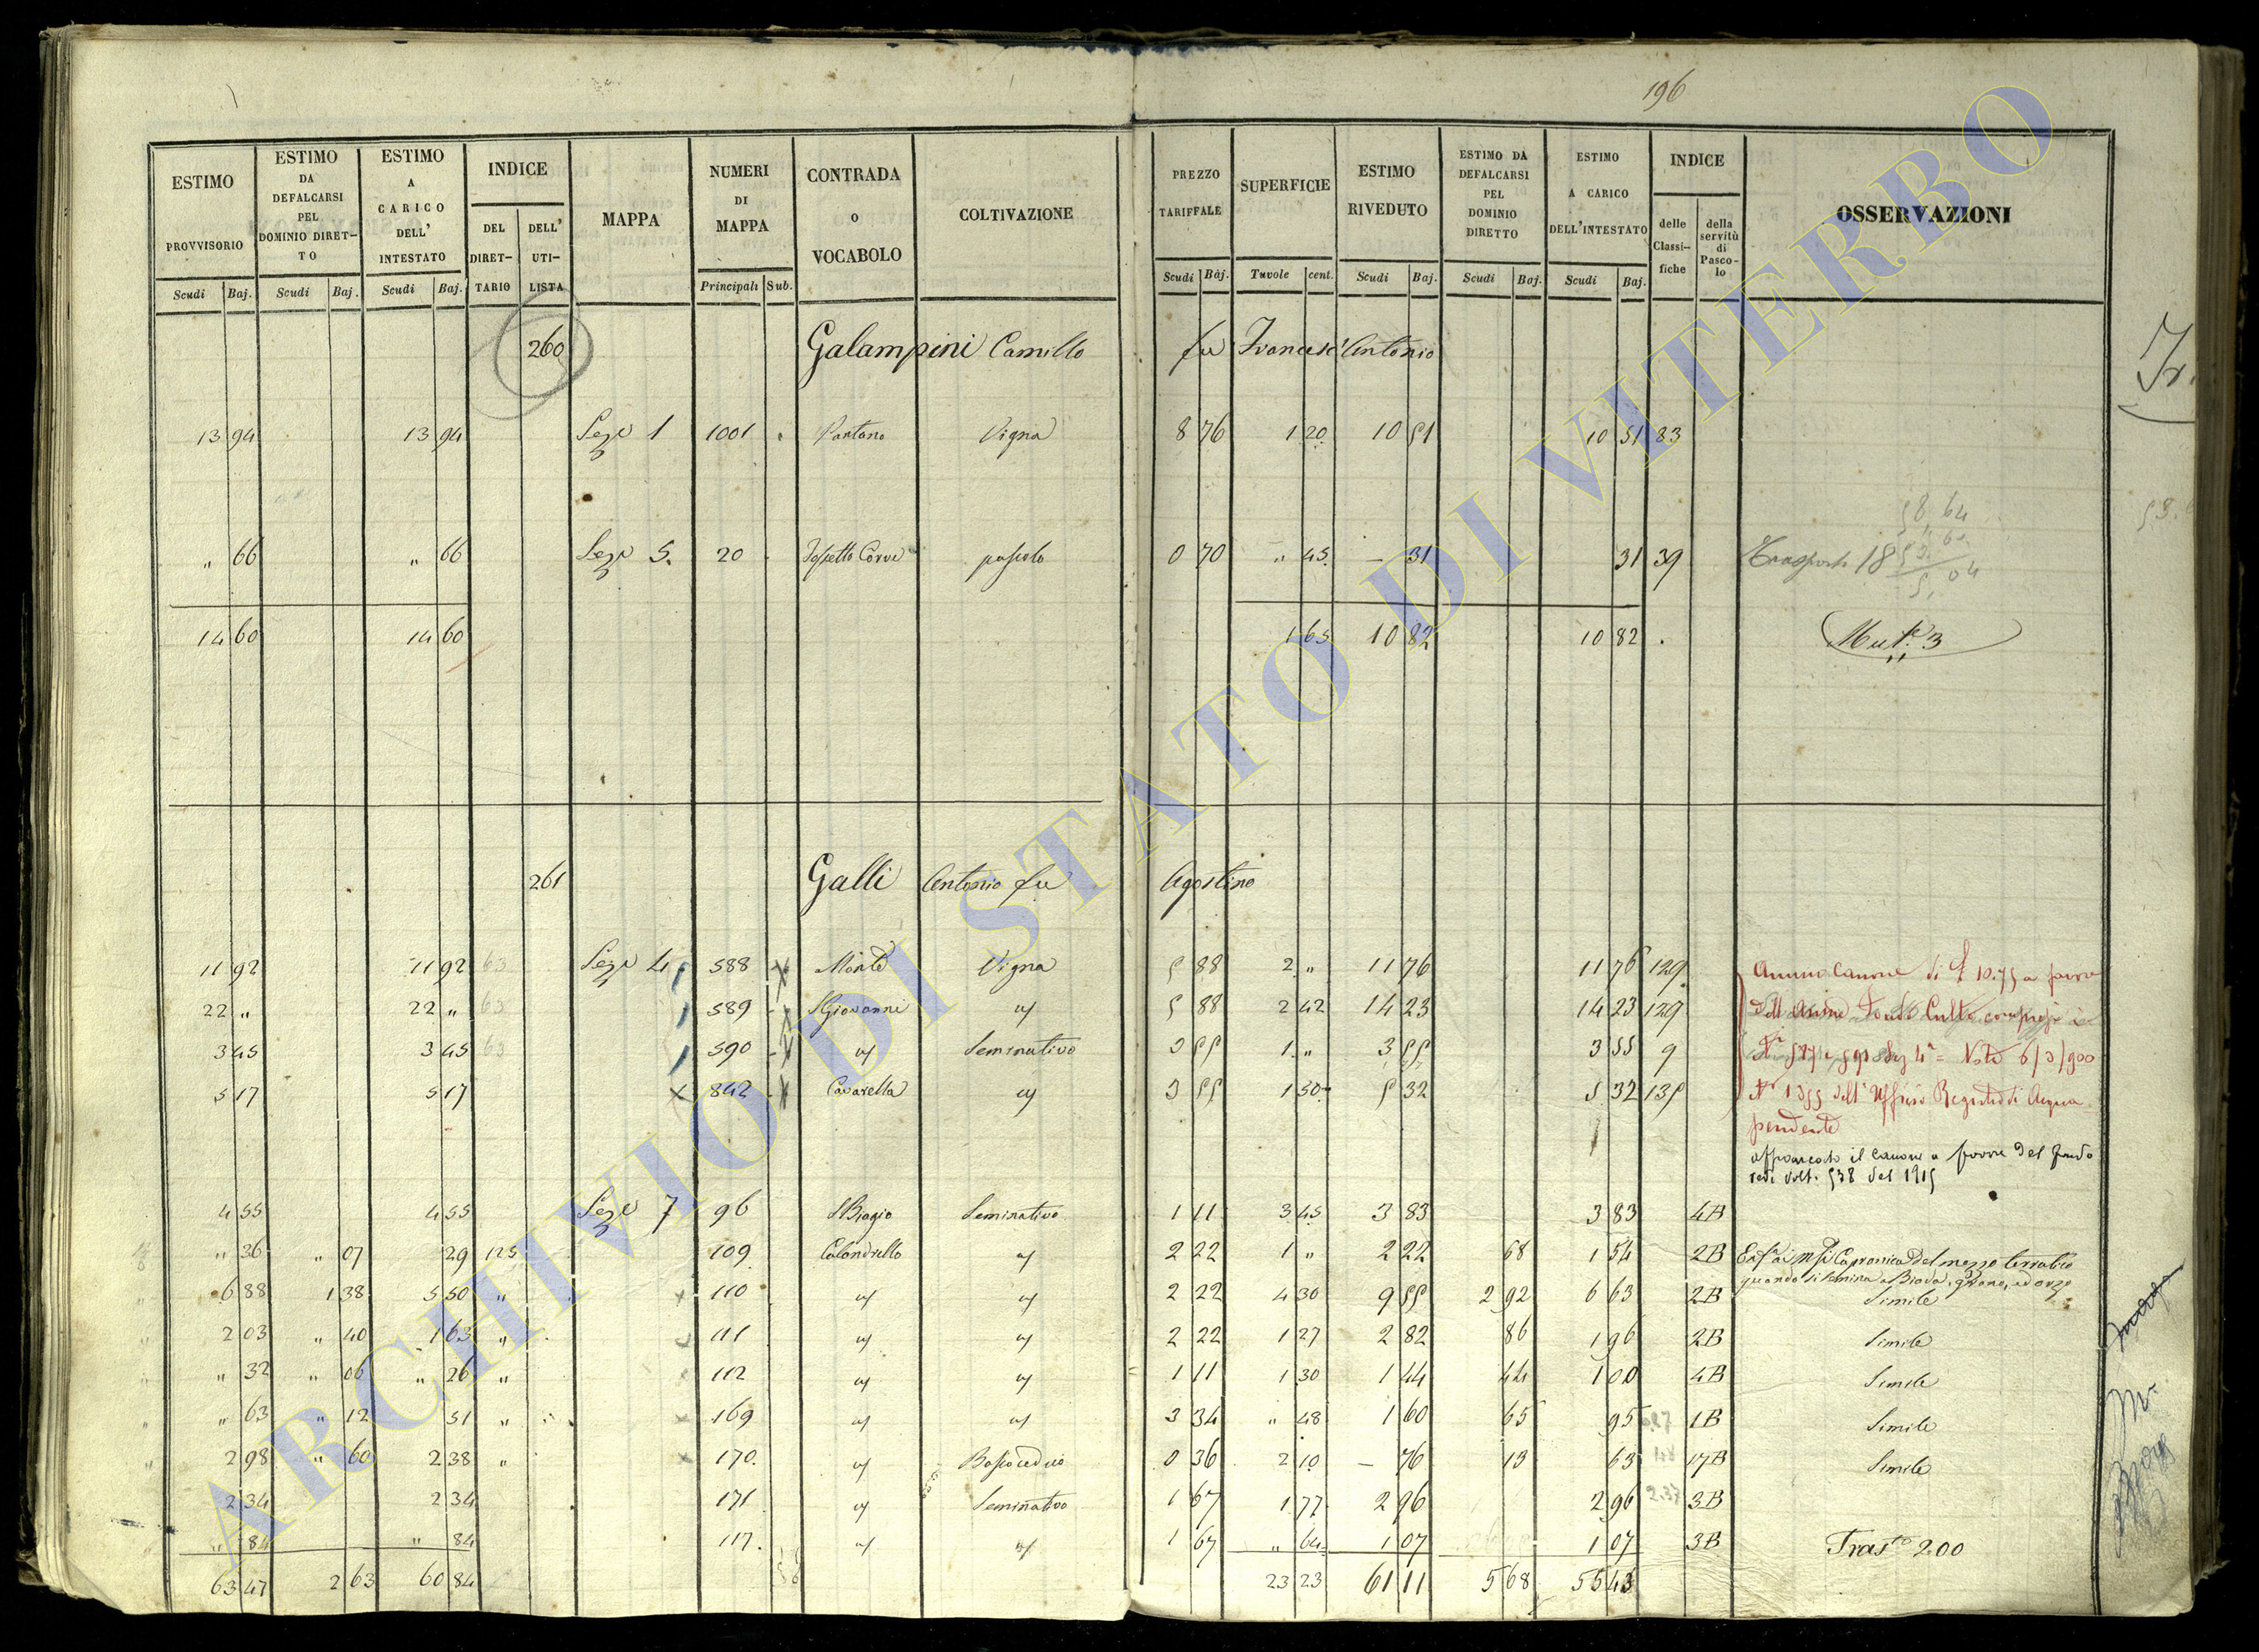 196
ESTIMO PROVVISORIO | ESTIMO DA DEFALCARSI PEL DOMINIO DIRET-TO | ESTIMO A CARICO DELL' INTESTATO | INDICE | MAPPA | NUMERI DI MAPPA | CONTRADA O VOCABOLO | COLTIVAZIONE | PREZZO TARIFFALE | SUPERFICIE | ESTIMO RIVEDUTO | ESTIMO DA DEFALCARSI PEL DOMINIO DIRETTO | ESTIMO A CARICO DELL'INTESTATO | INDICE | OSSERVAZIONI
DEL DIRET-TARIO | DELL' UTI-LISTA | delle Classi-fiche | della servitù di Pasco-lo
Scudi | Baj. | Scudi | Baj. | Scudi | Baj. | Principali | Sub. | Scudi | Baj. | Tavole | cent. | Scudi | Baj. | Scudi | Baj. | Scudi | Baj.
260 Galampini Camillo fu Francesc'Antonio
13 94 | 13 94 | Sez.e 1 | 1001 | Pantano | Vigna | 8 76 | 1 20 | 10 51 | 10 51 | 83
58,64
" 66 | " 66 | Sez.e 5. | 20 | pascolo | 0 70 | " 45. | – 31 | 31 | 39 | Trasporto 18
5,04
14 60 | 14 60 | 1 65 | 10 82 | 10 82 | Mut.e 3
261 Galli Antonio fu Agostino
11 92 | 11 92 | 63 | Sez.e 4 | 588 | Monte | Vigna | 5 88 | 2 " | 11 76 | 11 76 | 129 | Annuo Canone di £ 10.75 a favore
22 " | 22 " | 63 | 589 | S Giovanni | " | 5 88 | 2 42 | 14 23 | 14 23 | 129 | Culto compresi i
3 45 | 3 45 | 63 | 590 | " | Seminativo | 3 55 | 1 " | 3 55 | 3 55 | 9 | 4a = Nota 6/3/900
5 17 | 5 17 | 842 | Cavarella | " | 3 55 | 1 50 | 5 32 | 5 32 | 135 | dell'Ufficio Registro di Acqua
pendente
affrancato il canone a favore del fondo
vedi volt. 538 del 1915
4 55 | 4 55 | Sez.e 7 | 96 | S Biagio | Seminativo | 1 11 | 3 45 | 3 83 | 3 83 | 4B
" 36 | " 07 | 29 | 125 | 109 | Calandrello | " | 2 22 | 1 " | 2 22 | 68 | 1 54 | 2B | Capronica del mezzo terratico
quando si semina a Biada, grano, ed orzo
6 88 | 1 38 | 5 50 | " | 110 | " | " | 2 22 | 4 30 | 9 55 | 2 92 | 6 63 | 2B | Simile
2 03 | " 40 | 1 63 | " | 111 | " | " | 2 22 | 1 27 | 2 82 | 86 | 1 96 | 2B | Simile
" 32 | " 06 | " 26 | " | 112 | " | " | 1 11 | 1 30 | 1 44 | 44 | 1 00 | 4B | Simile
" 63 | " 12 | 51 | " | 169 | " | " | 3 34 | " 48 | 1 60 | 65 | 95 | 1B | Simile
2 98 | " 60 | 2 38 | " | 170. | " | Bosco ceduo | 0 36 | 2 10 | – 76 | 13 | 63 | 17B | Simile
2 34 | 2 34 | 171 | " | Seminativo | 1 67 | 1 77 | 2 96 | 2 96 | 3B
" 84 | " 84 | 117. | " | " | 1 67 | " 64 | 1 07 | 1 07 | 3B | Trasto 200
63 47 | 2 63 | 60 84 | 23 23 | 61 11 | 5 68 | 55 43
ARCHIVIO DI STATO DI VITERBO